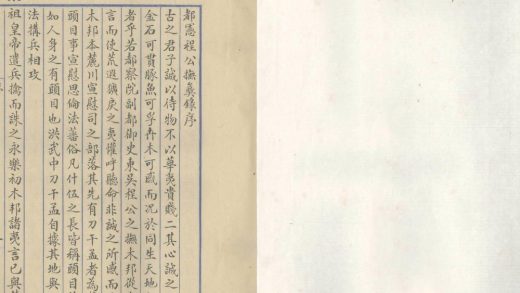 都憲程公撫彝錄序
古之君子誠以待物不以華彝貴賤二其心誠之
金石可貫豚魚可孚卉木可感而況於同生天地
者乎若都察院副都御史東吳程公之撫木邦從
言而使荒遐獷戾之夷懽呼聽命非誠之所感而
木邦本麓川宣慰司之部落其先有刀干孟者為
頭目事宣慰思倫法蕃俗凡什伍之長皆稱頭目
如人身之有頭目也洪武中刀干孟自據其地與
法搆兵相攻
祖皇帝遣兵擒而誅之永樂初木邦諸夷言已與